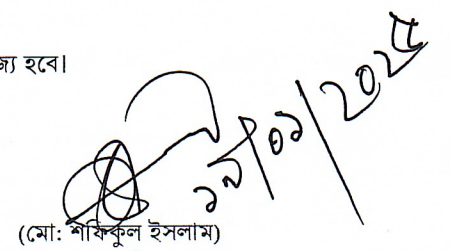 জ্য হবে।
১৯/০১/২০২৫
(মো: শফিকুল ইসলাম)